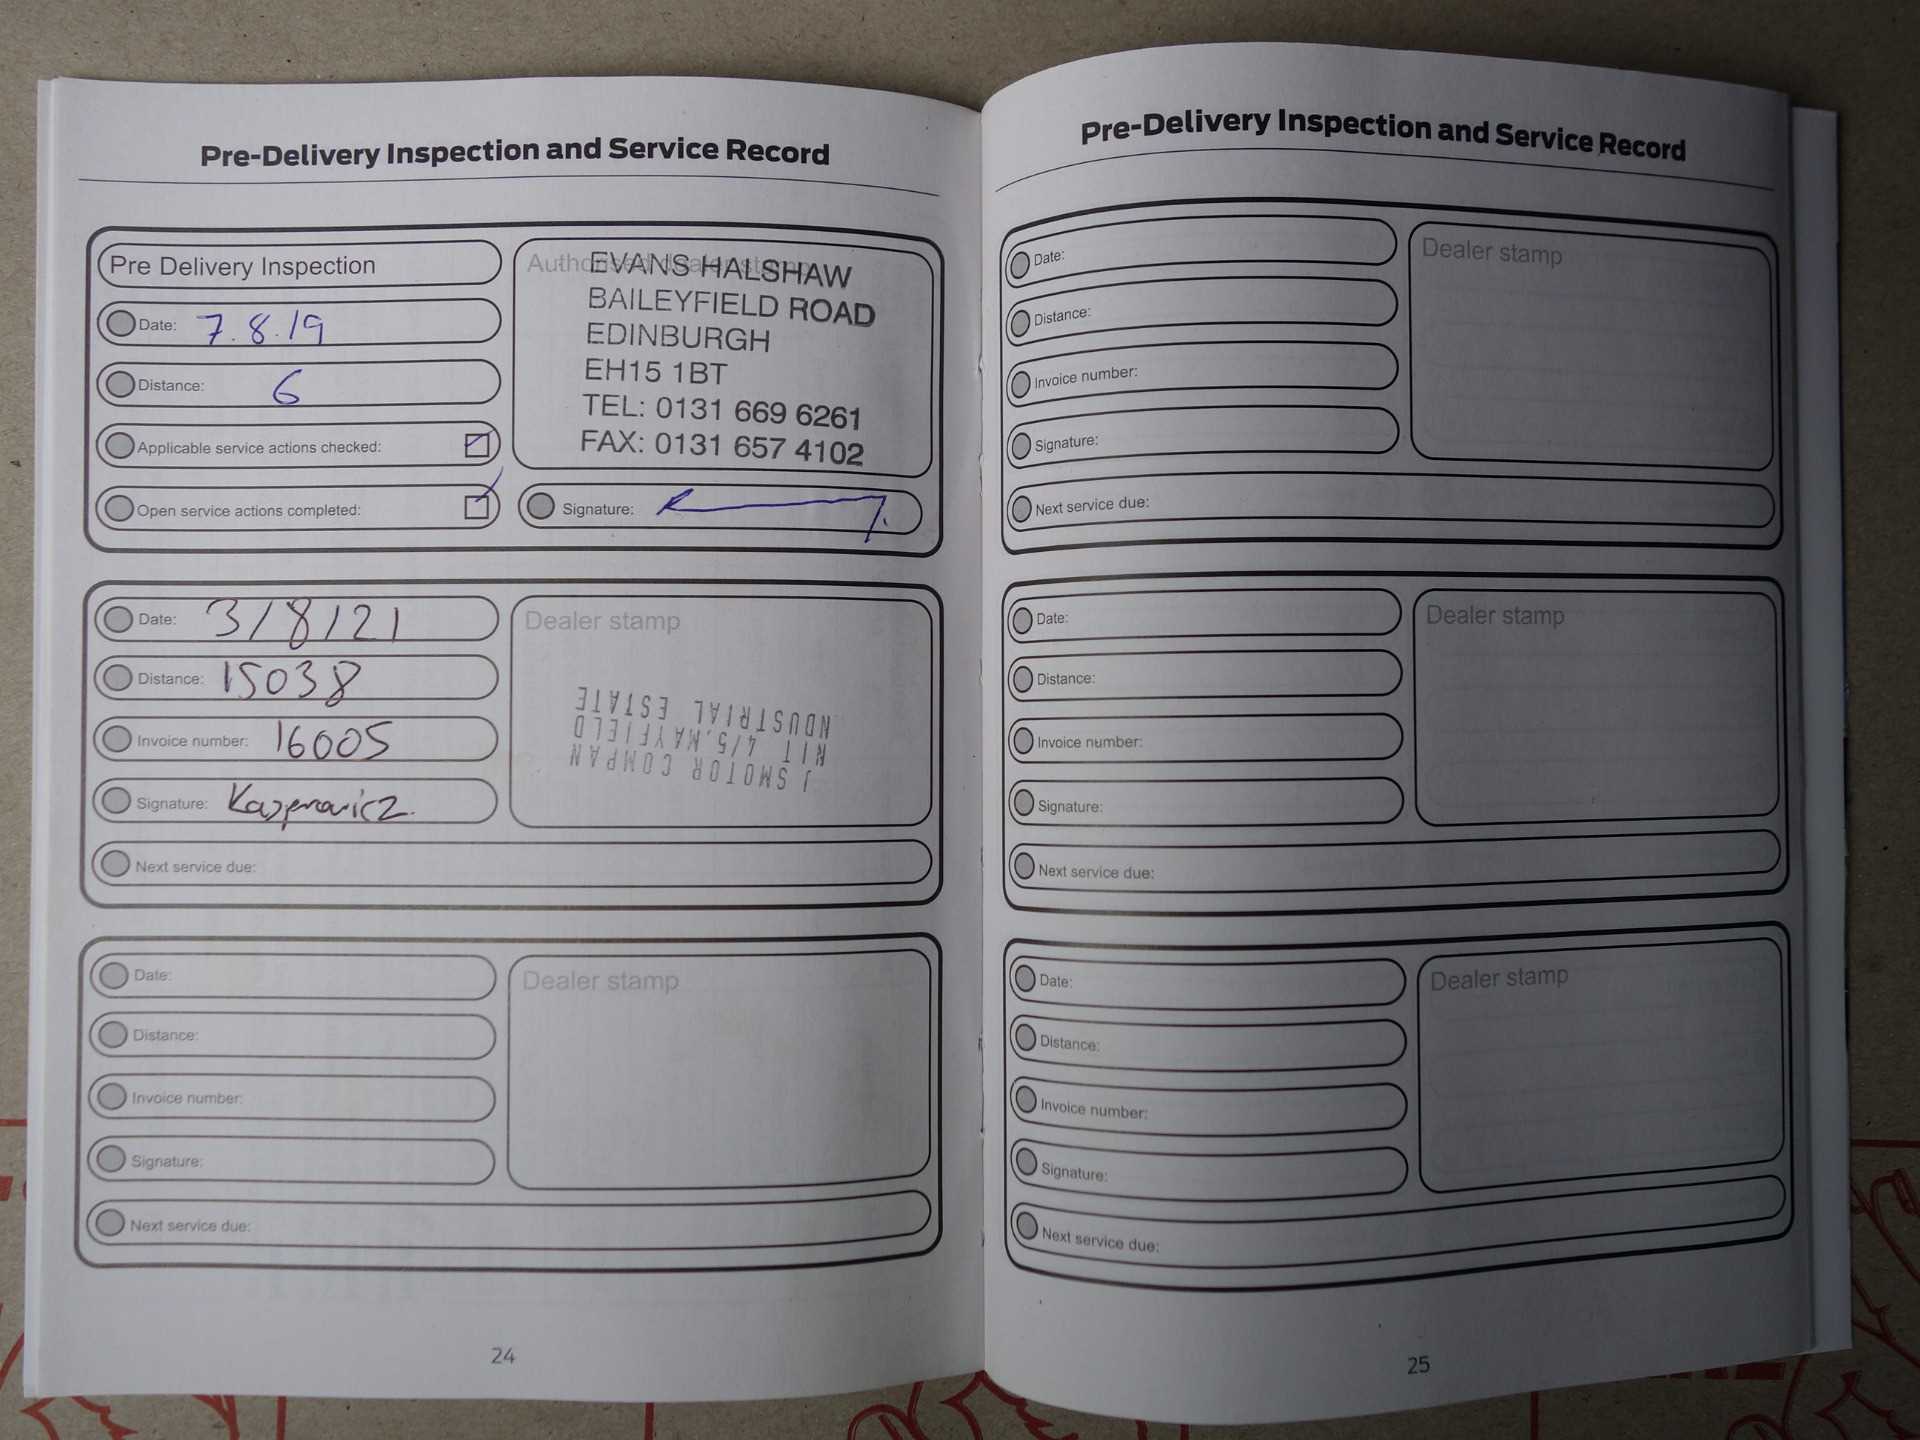 Pre-Delivery Inspection and Service Record
Pre Delivery Inspection
Date: 7.8.19
Distance: 6
Applicable service actions checked:
Open service actions completed:
Authorised dealer stamp
EVANS HALSHAW
BAILEYFIELD ROAD
EDINBURGH
EH15 1BT
TEL: 0131 669 6261
FAX: 0131 657 4102
Signature:
Date: 3/8/21
Distance: 15038
Invoice number: 16005
Signature:
Next service due:
Dealer stamp
J SMOTOR COMPAN
NIT 4/5, MAYFIELD
NDUSTRIAL ESTATE
Date:
Distance:
Invoice number:
Signature:
Next service due:
Dealer stamp
24
Pre-Delivery Inspection and Service Record
Date:
Distance:
Invoice number:
Signature:
Next service due:
Dealer stamp
Date:
Distance:
Invoice number:
Signature:
Next service due:
Dealer stamp
Date:
Distance:
Invoice number:
Signature:
Next service due:
Dealer stamp
25